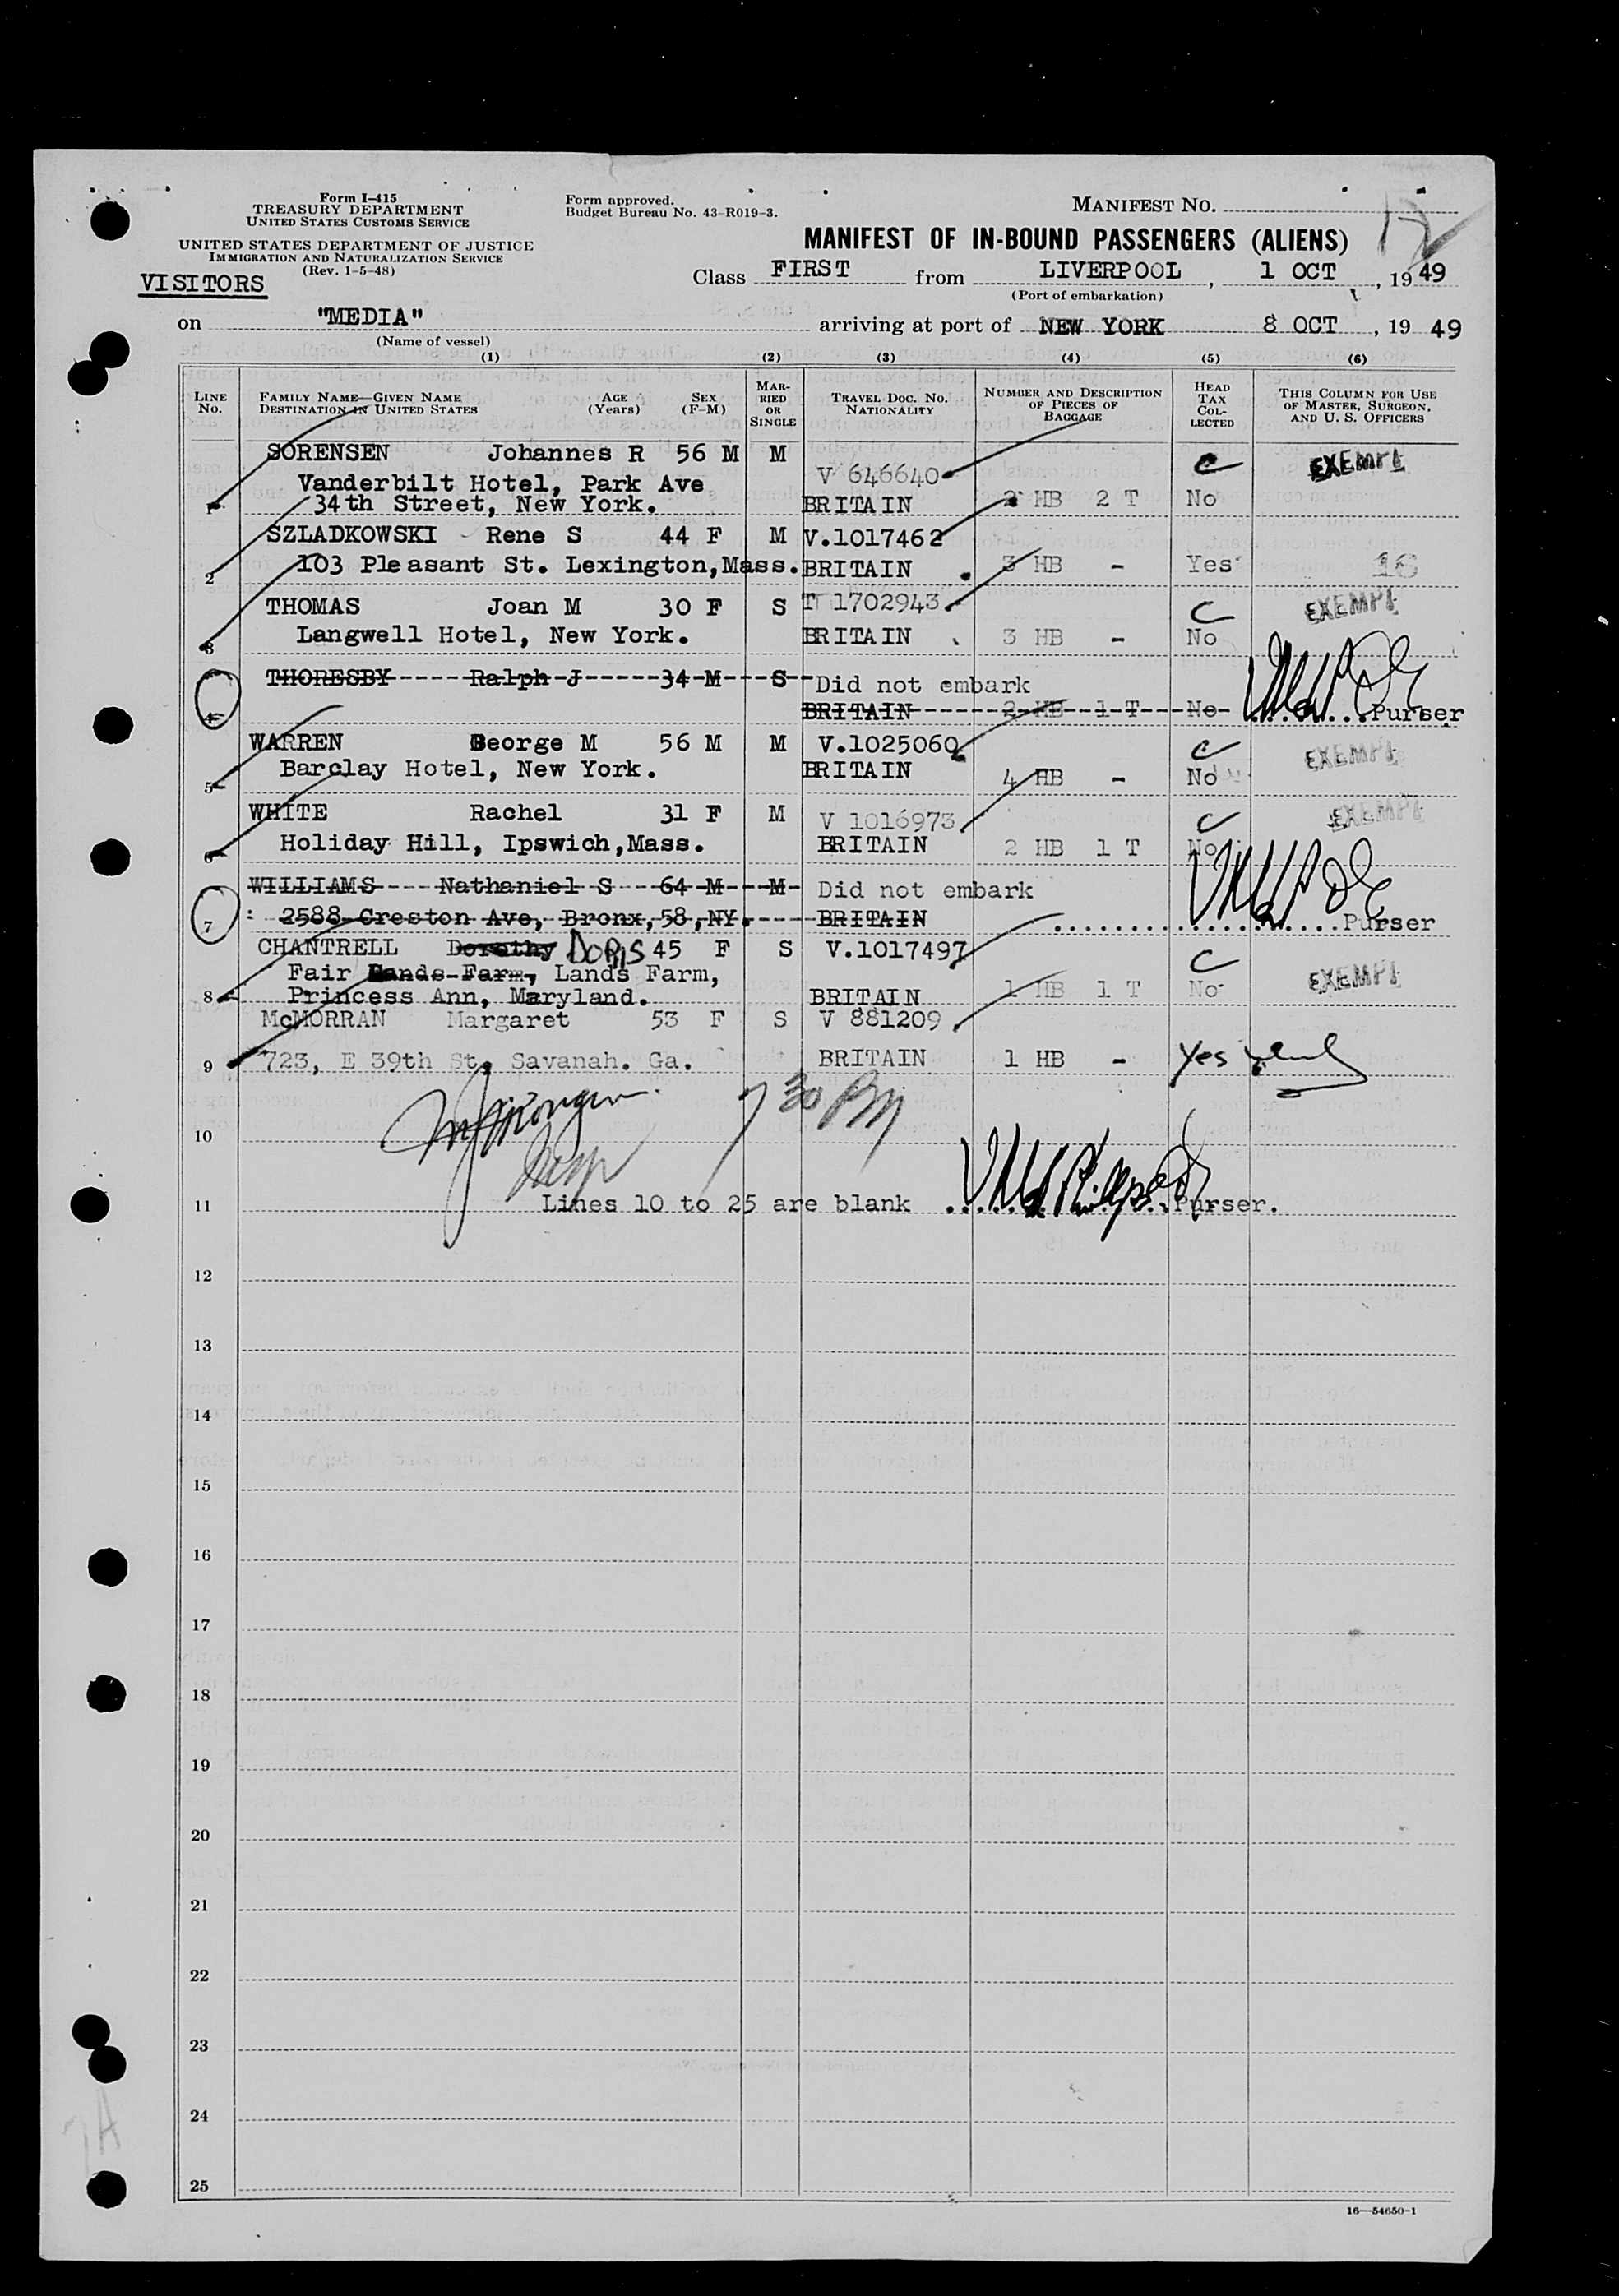 Form I-415
TREASURY DEPARTMENT
UNITED STATES CUSTOMS SERVICE
UNITED STATES DEPARTMENT OF JUSTICE
IMMIGRATION AND NATURALIZATION SERVICE
(Rev. 1-5-48)
Form approved.
Budget Bureau No. 43-R019-3.
MANIFEST NO.
MANIFEST OF IN-BOUND PASSENGERS (ALIENS)
VISITORS
Class FIRST from LIVERPOOL, 1 OCT, 1949
(Port of embarkation)
on "MEDIA" arriving at port of NEW YORK 8 OCT, 1949
(Name of vessel)
(1) (2) (3) (4) (5) (6)
LINE No. FAMILY NAME—GIVEN NAME DESTINATION IN UNITED STATES AGE (Years) SEX (F-M) MARRIED OR SINGLE TRAVEL DOC. NO. NATIONALITY NUMBER AND DESCRIPTION OF PIECES OF BAGGAGE HEAD TAX COLLECTED THIS COLUMN FOR USE OF MASTER, SURGEON, AND U. S. OFFICERS
SORENSEN Johannes R 56 M M V 646640 C EXEMPT
Vanderbilt Hotel, Park Ave
1 34th Street, New York. BRITAIN 2 HB 2 T No
SZLADKOWSKI Rene S 44 F M V.1017462
2 103 Pleasant St. Lexington,Mass. BRITAIN 3 HB - Yes 16
THOMAS Joan M 30 F S T 1702943 C EXEMPT
3 Langwell Hotel, New York. BRITAIN 3 HB - No
THORESBY Ralph J 34 M S Did not embark
4 BRITAIN 2 HB 1 T No Purser
WARREN George M 56 M M V.1025060 C EXEMPT
5 Barclay Hotel, New York. BRITAIN 4 HB - No
WHITE Rachel 31 F M V 1016973 C EXEMPT
6 Holiday Hill, Ipswich,Mass. BRITAIN 2 HB 1 T No
WILLIAMS Nathaniel S 64 M M Did not embark
7 2588 Creston Ave, Bronx,58,NY. BRITAIN Purser
CHANTRELL Dorothy DORIS 45 F S V.1017497 C EXEMPT
Fair Lands Farm, Lands Farm,
8 Princess Ann, Maryland. BRITAIN 1 HB 1 T No
McMORRAN Margaret 53 F S V 881209
9 723, E 39th St, Savanah. Ga. BRITAIN 1 HB - Yes
7 30 PM
10
11 Lines 10 to 25 are blank Purser.
12
13
14
15
16
17
18
19
20
21
22
23
24
25
16—54650-1